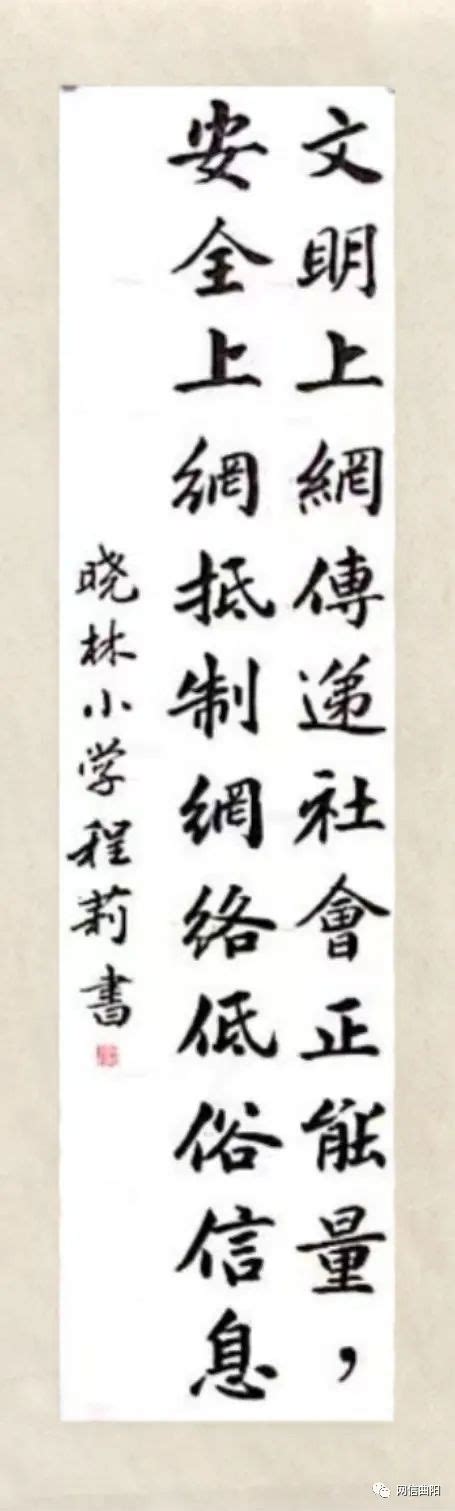 文明上網傳递社會正能量，
安全上網抵制網络低俗信息
晓林小学程莉書
网信曲阳